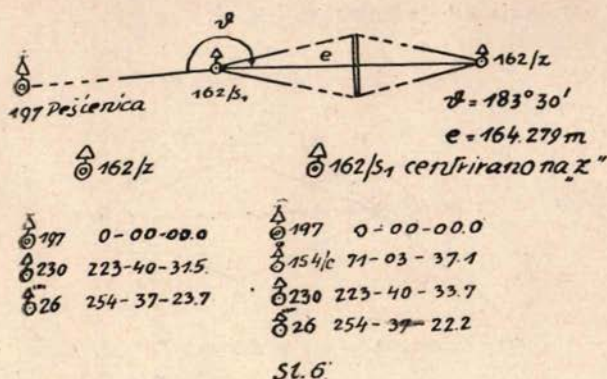 ϑ
e
162/z
162/s₁
197 Pešćenica
ϑ = 183° 30'
e = 164.279 m
162/z
162/s₁ centrirano na „z"
197 0-00-00.0
230 223-40-31.5.
26 254-37-23.7
197 0-00-00.0
154/c 71-03-37.1
230 223-40-33.7
26 254-37-22.2
Sl. 6